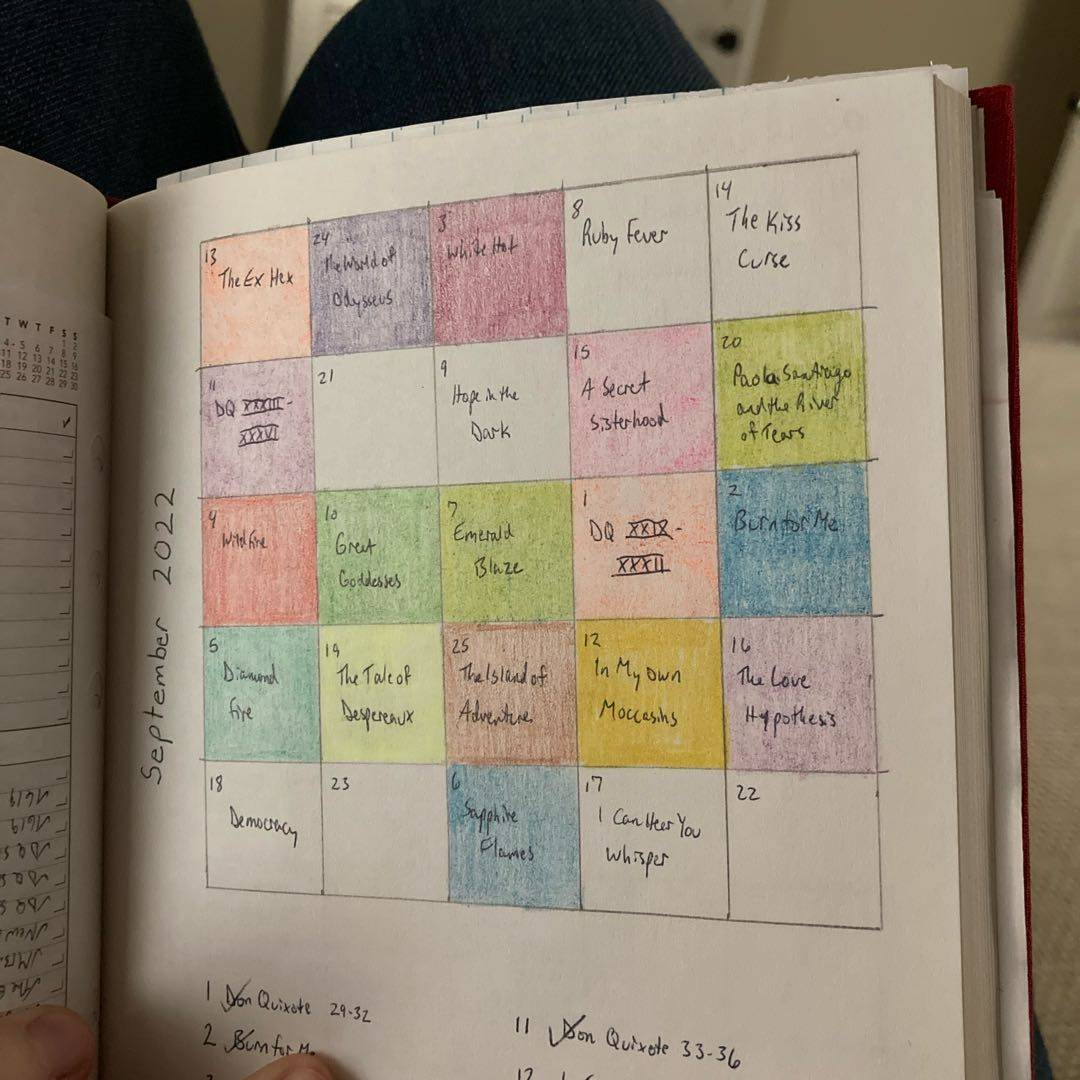 T W T F S S
1 2
4 5 6 7 8 9
11 12 13 14 15 16
18 19 20 21 22 23
25 26 27 28 29 30
September 2022
13
The Ex Hex
24
The World of
Odysseus
3
White Hot
8
Ruby Fever
14
The Kiss
Curse
11
DQ XXXIII-
XXXVI
21
9
Hope in the
Dark
15
A Secret
Sisterhood
20
Paola Santiago
and the River
of Tears
4
Wildfire
10
Great
Goddesses
7
Emerald
Blaze
1
DQ XXIX-
XXXII
2
Burn for Me
5
Diamond
Fire
19
The Tale of
Despereaux
25
The Island of
Adventure
12
In My Own
Moccasins
16
The Love
Hypothesis
18
Democracy
23
6
Sapphire
Flames
17
I Can Hear You
Whisper
22
1 Don Quixote 29-32
2 Burn for Me
11 Don Quixote 33-36
12